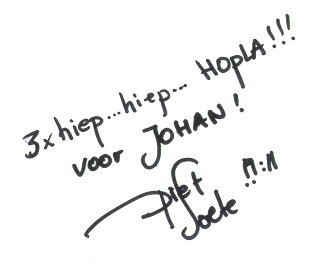 3x hiep...hiep... HOPLA!!!
voor JOHAN!
Piet